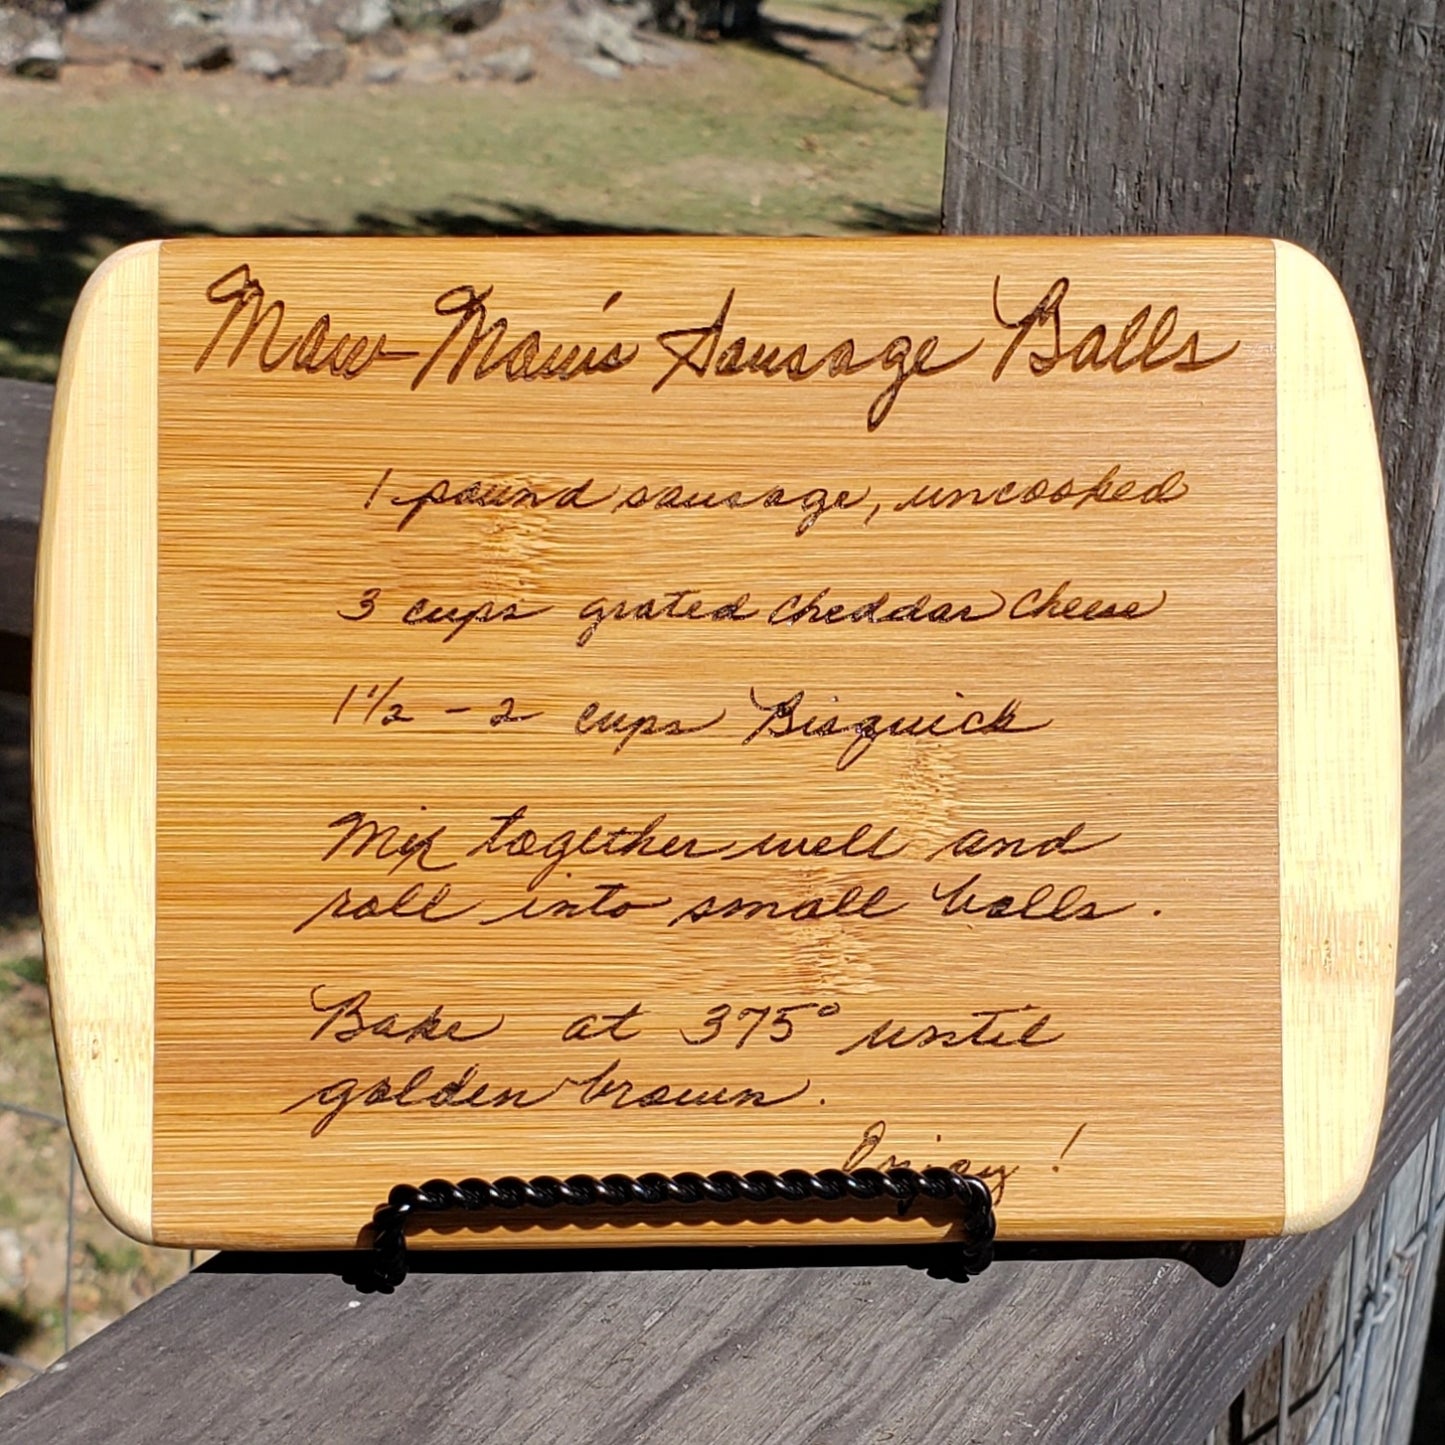 Maw-Maw's Sausage Balls
1 pound sausage, uncooked
3 cups grated cheddar cheese
1 1/2 - 2 cups Bisquick
Mix together well and
roll into small balls.
Bake at 375° until
golden brown.
Enjoy!